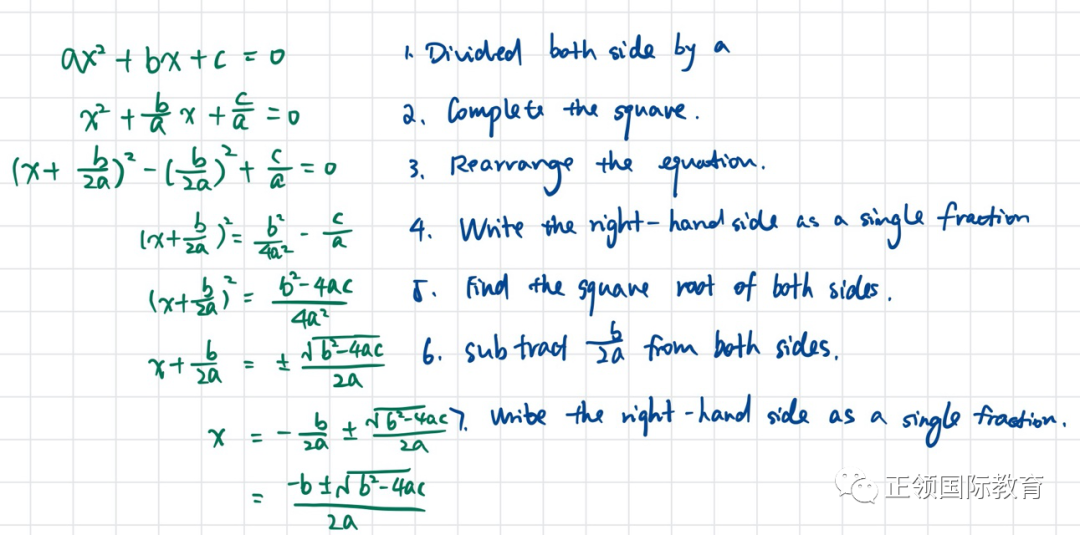 ax² + bx + c = 0 1. Divided both side by a
x² + b/a x + c/a = 0 2. Complete the square.
(x + b/2a)² - (b/2a)² + c/a = 0 3. Rearrange the equation.
(x + b/2a)² = b²/4a² - c/a 4. Write the right-hand side as a single fraction
(x + b/2a)² = b² - 4ac/4a² 5. Find the square root of both sides.
x + b/2a = ± √b² - 4ac/2a 6. subtract b/2a from both sides.
x = - b/2a ± √b² - 4ac/2a 7. Write the right-hand side as a single fraction.
= -b ± √b² - 4ac/2a
正领国际教育